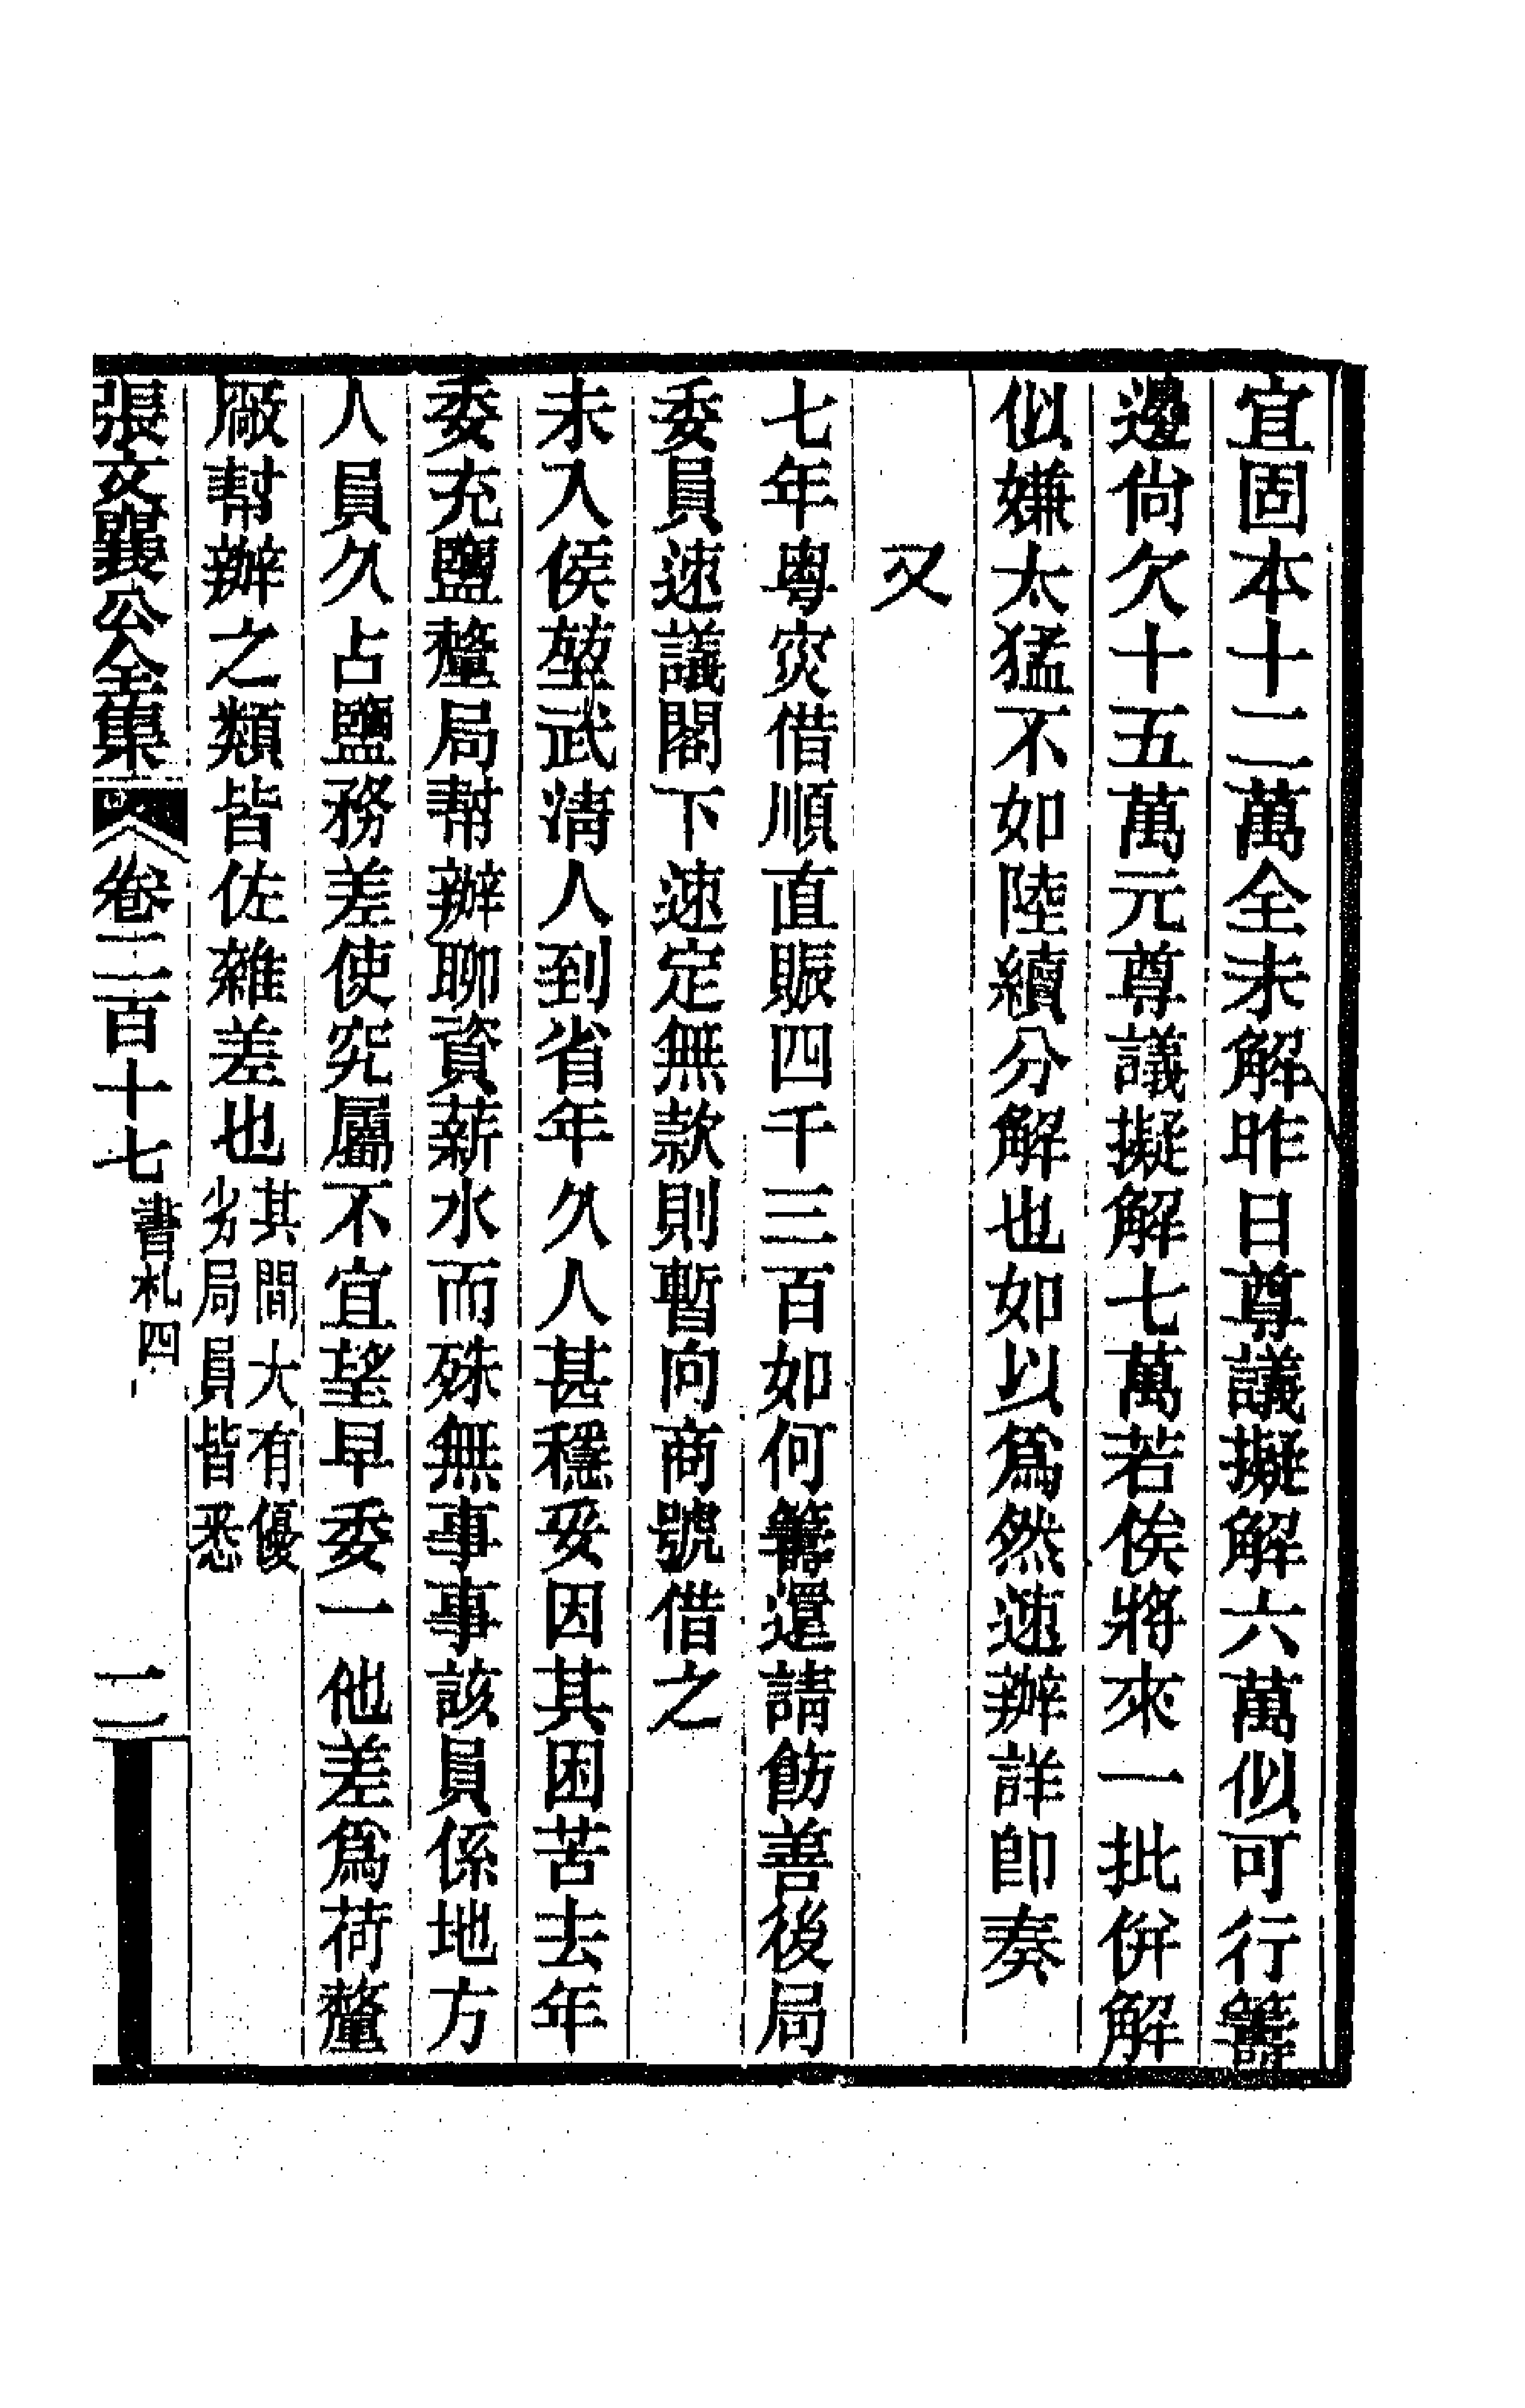 宜固本十二萬全未解昨日尊議擬解六萬似可行籌
邊尙欠十五萬元尊議擬解七萬若俟將來一批併解
似嫌太猛不如陸續分解也如以爲然速辦詳卽奏
又
七年粵灾借順直賑四千三百如何籌還請飭善後局
委員速議閣下速定無款則暫向商號借之
未入侯堃武淸人到省年久人甚穩妥因其困苦去年
委充鹽釐局幫辦聊資薪水而殊無事事該員係地方
人員久占鹽務差使究屬不宜望早委一他差爲荷釐
廠幫辦之類皆佐雜差也其間大有優
劣局員皆悉
張文襄公全集 卷二百十七 書札四 二